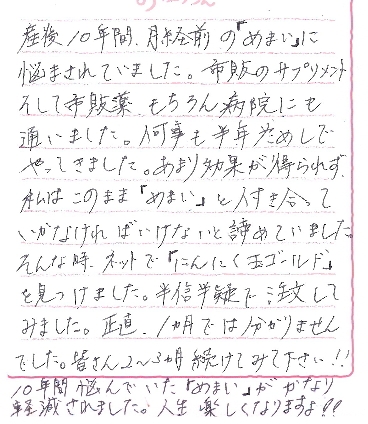 産後10年間、月経前の『めまい』に
悩まされていました。市販のサプリメント
そして市販薬、もちろん病院にも
通いました。何事も半年ためしで
やってきました。あまり効果が得られず、
私はこのまま『めまい』と付き合って
いかなければいけないと諦めていました。
そんな時、ネットで『にんにく玉ゴールド』
を見つけました。半信半疑で注文して
みました。正直、1ヵ月では分かりません
でした。皆さん2〜3ヵ月続けてみて下さい!!
10年間悩んでいた『めまい』がかなり
軽減されました。人生楽しくなりますよ!!